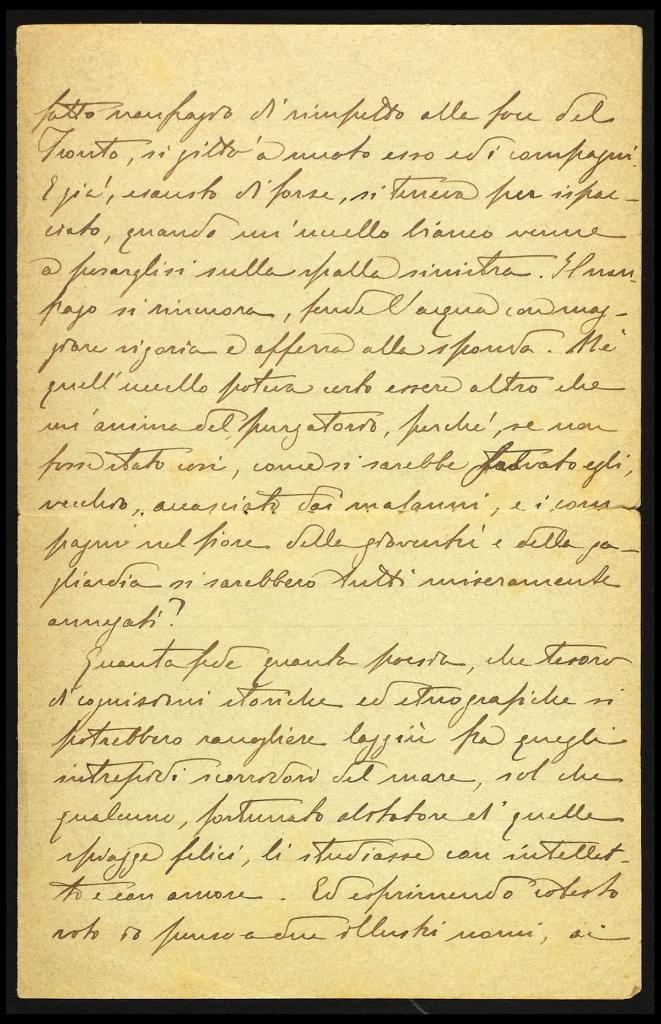 fatto naufragio di rimpetto alla foce del
Tronto, si gittò a nuoto esso ed i compagni.
E già, esausto di forze, si teneva per ispac-
ciato, quando un'uccello bianco venne
a posarglisi sulla spalla sinistra. Il nau-
frago si rincuora, fende l'acqua con mag-
giore vigoria e afferra alla sponda. Nè
quell'uccello poteva certo essere altro che
un'anima del purgatorio, perchè, se non
fosse stato così, come si sarebbe salvato egli,
vecchio, accasciato dai malanni, e i com-
pagni nel fiore della gioventù e della ga-
gliardia si sarebbero tutti miseramente
annegati?
Quanta fede quanta poesia, che tesoro
di cognizioni storiche ed etnografiche si
potrebbero raccogliere laggiù fra quegli
intrepidi scorridori del mare, sol che
qualcuno, fortunato abitatore di quelle
spiagge felici, li studiasse con intellet-
to e con amore. Ed esprimendo cotesto
voto io penso a due illustri nomi, ai